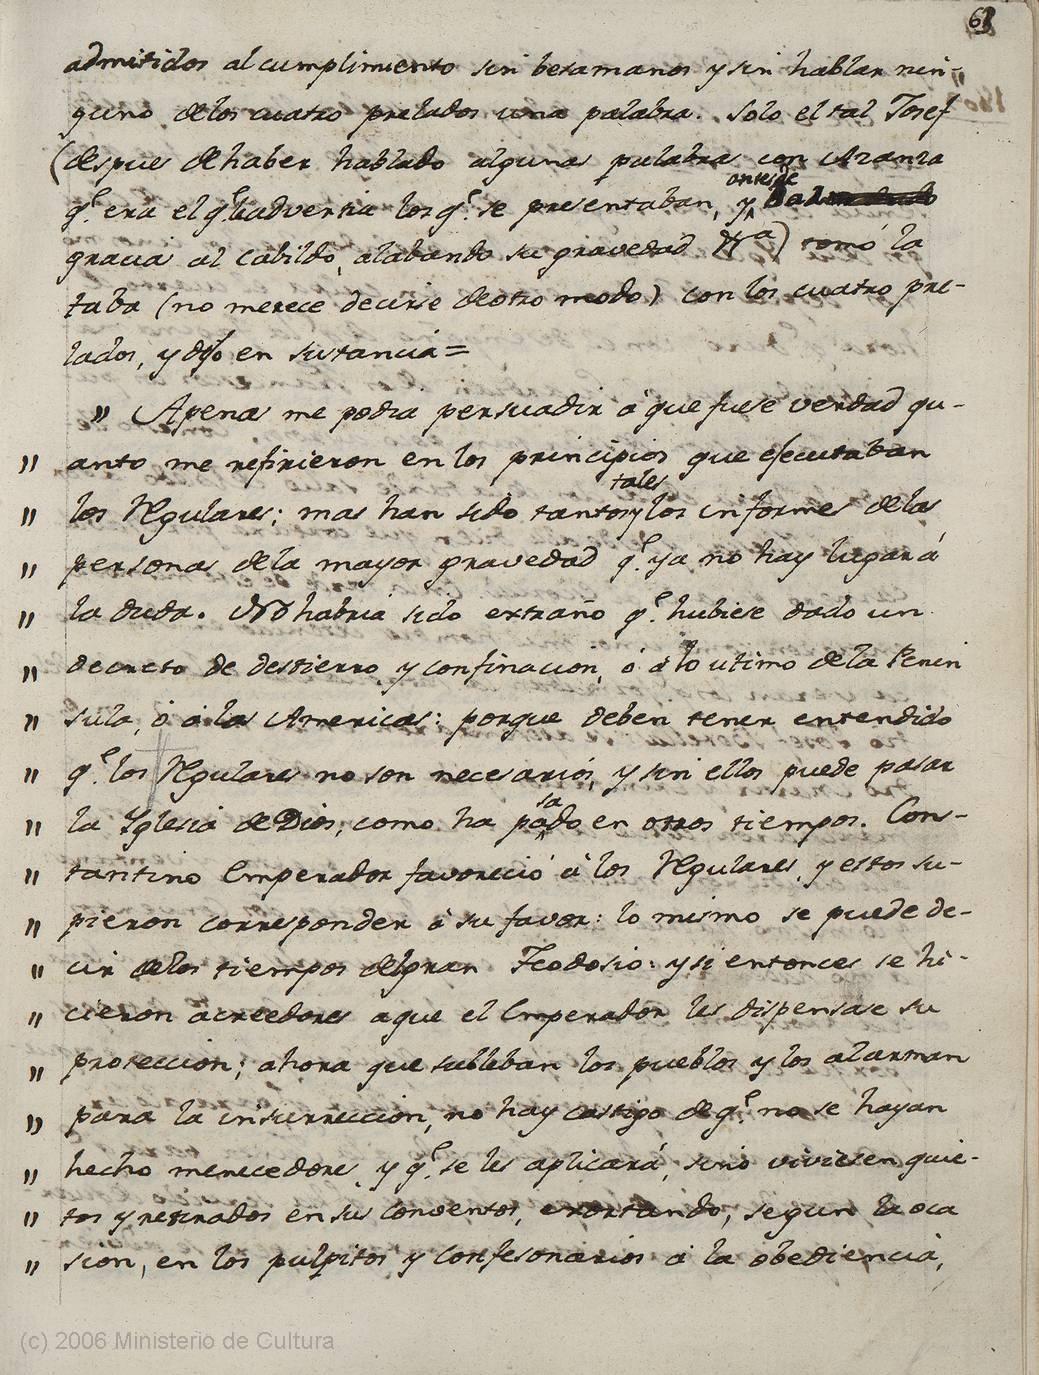 68
admitidos al cumplimiento sin besamanos y sin hablar nin-
guno de los cuatro prelados una palabra. Solo el tal Josef
(despues de haber hablado algunas palabras con Azanza
q.e era el q.e le advertia los q.e se presentaban, y antes de
gracia al Cabildo, alabando su gravedad &a) tomó la
taba (no merece decirse de otro modo) con los cuatro pre-
lados, y dijo en sustancia=
" Apenas me podia persuadir á que fuese verdad qu-
" anto me refirieron en los principios que ejecutaban
" los Regulares; mas han sido tantos y tales los informes de las
" personas de la mayor gravedad q.e ya no hay lugar á
" la duda. No habria sido extraño q.e hubiese dado un
" decreto de destierro, y confinacion, ó á lo utimo de la Penin
" sula, ó á las Americas: porque deben tener entendido
" q.e los Regulares no son necesarios, y sin ellos puede pasar
" la Yglesia de Dios, como ha pasado en otros tiempos. Cons-
" tantino Emperador favoreció á los Regulares, y estos su-
" pieron corresponder á su favor: lo mismo se puede de-
" cir de los tiempos del gran Teodosio: y si entonces se hi-
" cieron acreedores a que el Emperador les dispensase su
" proteccion; ahora que subleban los pueblos y los alarman
" para la insurreccion, no hay castigo de q.e no se hayan
" hecho merecedores, y q.e se les aplicará, sino viviesen quie-
" tos y retirados en sus conventos, exortando, segun la oca
" sion, en los pulpitos y confesonarios á la obediencia,
(c) 2006 Ministerio de Cultura